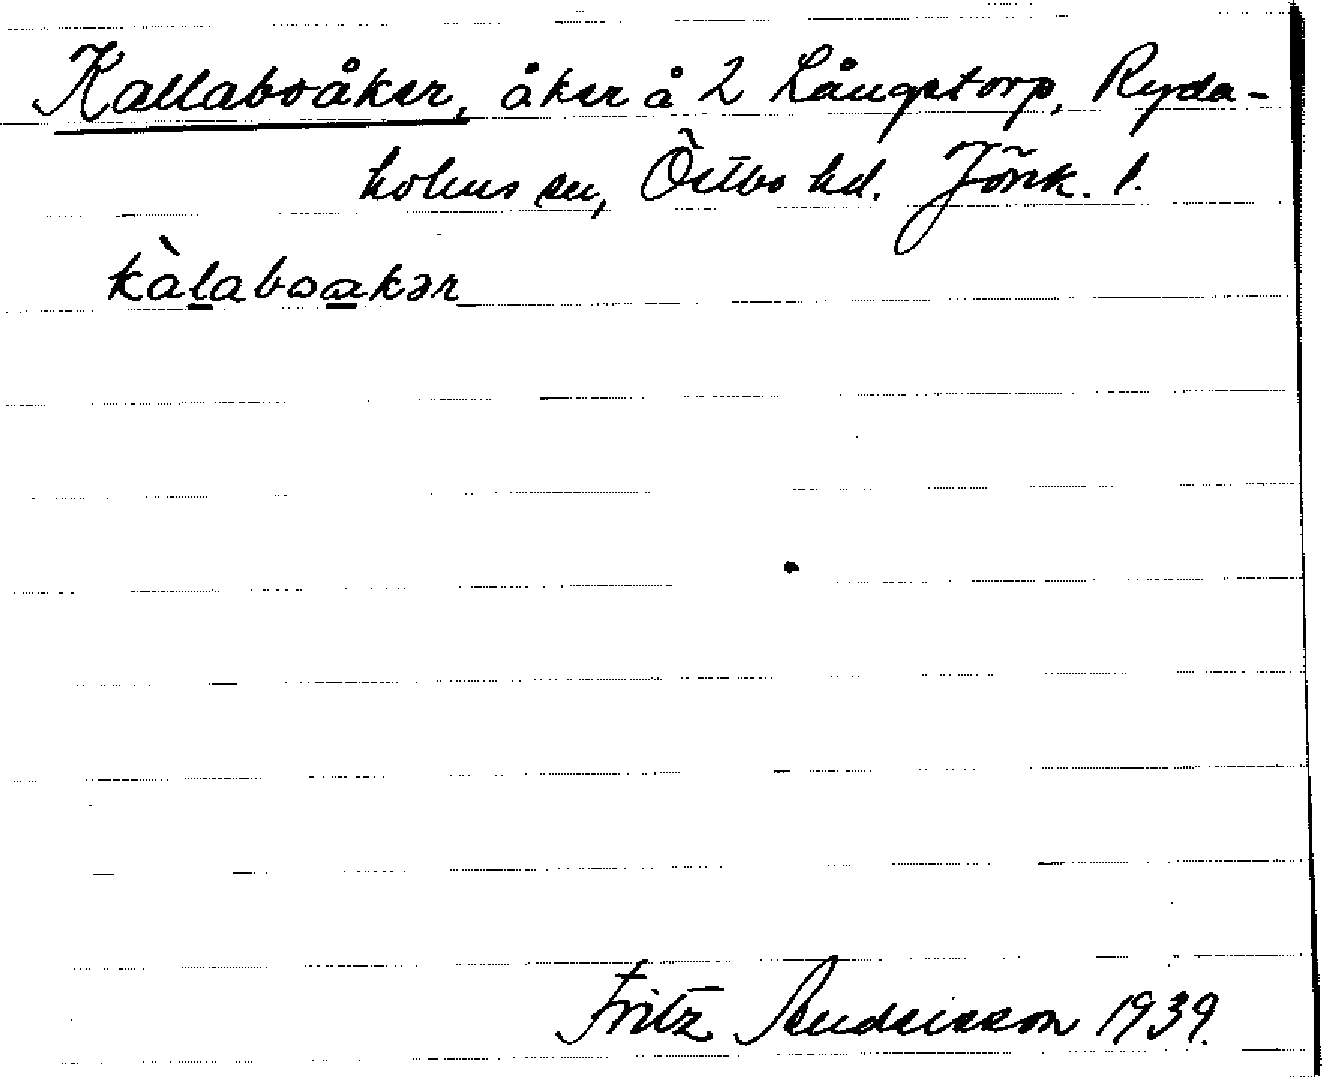 Kallaboåker, åker å 2 Långstorp, Ryda-
holms sn, Östbo hd. Jönk. l.
kàlaboakər
Fritz Andreasson 1939.